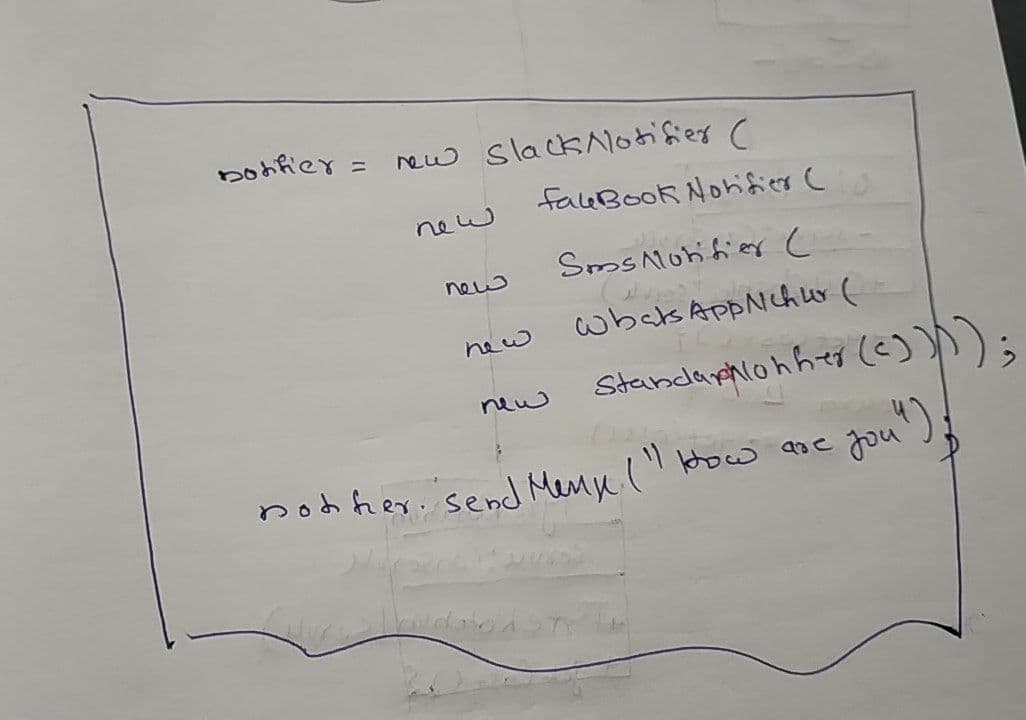 notifier = new SlackNotifier (
new faceBookNotifier (
new SmsNotifier (
new WhatsAppNotifier (
new StandardNotifier (c)))));
notifier.send ("How are you");